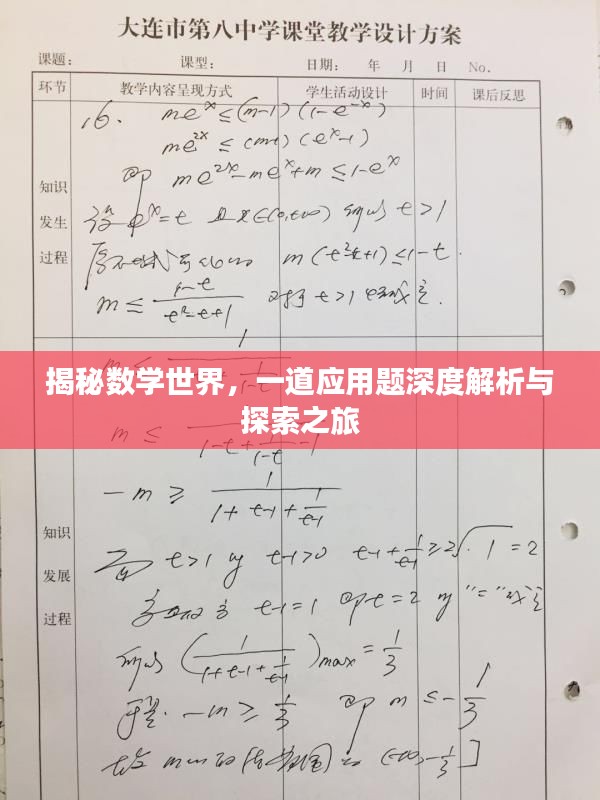 大连市第八中学课堂教学设计方案
课题： 课型： 日期： 年 月 日 No.
环节 教学内容呈现方式 学生活动设计 时间 课后反思
16. me^x ≤ (m-1)(1-e^-x)
me^2x ≤ (m-1)(e^x-1)
知识 即 me^2x-me^x+m ≤ 1-e^x
发生 设 e^x=t 且x∈(0,+∞) 所以 t>1
过程 m(t²-t+1) ≤ 1-t.
m ≤ 1-t / t²-t+1 对于 t>1 恒成立.
揭秘数学世界，一道应用题深度解析与
探索之旅
m ≤
-m ≥ 1 / 1+t-1+1/t-1
知识 t>1 t-1>0 t-1+1/t-1 ≥ 2√ · 1 = 2
发展 t-1=1 即t=2 时 "=" 成立
过程 所以 (1 / 1+t-1+1/t-1)max = 1/3
-m ≥ 1/3 即 m ≤ -1/3
故 m 的 (-∞,-1/3]